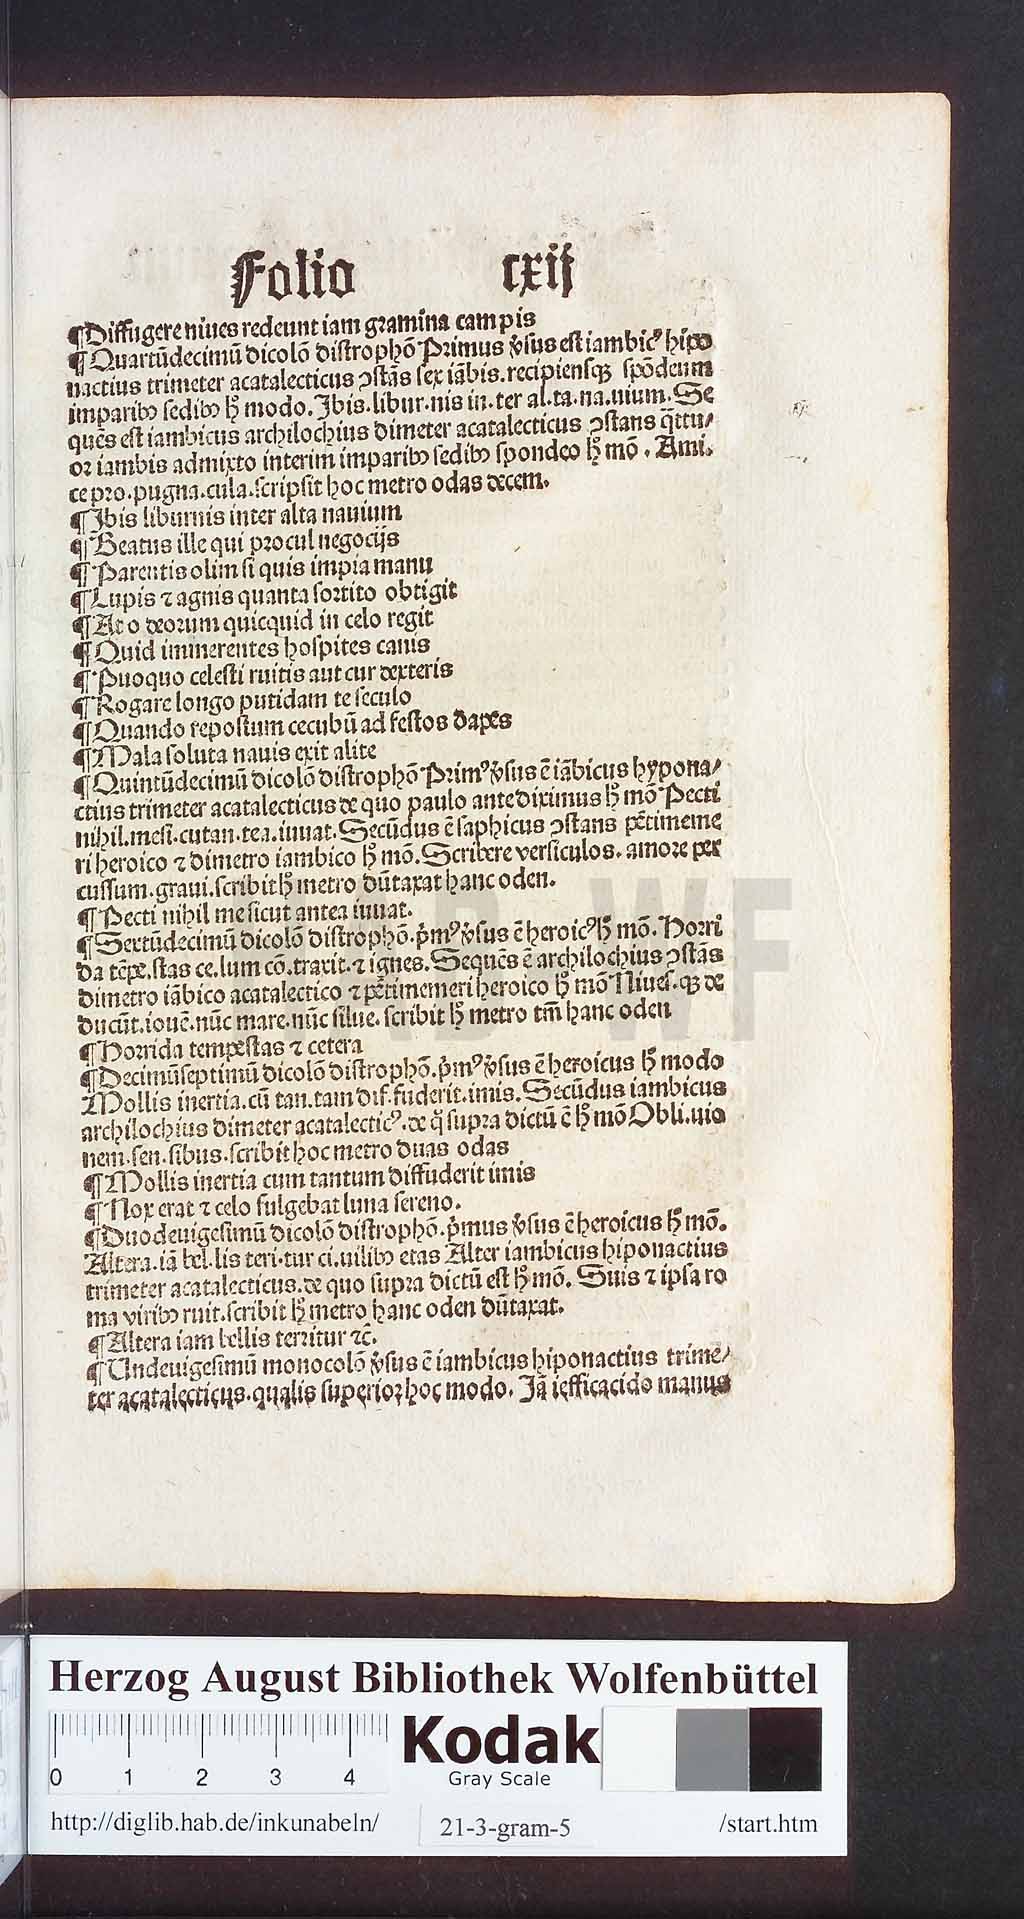 Folio cxij
¶Diffugere niues redeunt iam gramina campis
¶Quartũdecimũ dicolõ distrophõ Primus v̓sus est iambicꝰ hipo
nactius trimeter acatalecticus ꝯstãs sex iãbis.recipiensqꝫ spõdeum
imparibꝫ sedibꝫ hͦ modo. Ibis.libur.nis in.ter al.ta.na.uium. Se
quẽs est iambicus archilochius dimeter acatalecticus ꝯstans q̃ttu/
or iambis admixto interim imparibꝫ sedibꝫ spondeo hͦ mõ. Ami.
ce pro.pugna.cula.scripsit hoc metro odas decem.
¶Ibis liburnis inter alta nauium
¶Beatus ille qui procul negocijs
¶Parentis olim si quis impia manu
¶Lupis ⁊ agnis quanta sortito obtigit
¶At o deorum quicquid in celo regit
¶Quid immerentes hospites canis
¶Puoquo celesti ruitis aut cur dexteris
¶Rogare longo putidam te seculo
¶Quando repostum cecubũ ad festos dapes
¶Mala soluta nauis exit alite
¶Quintũdecimũ dicolõ distrophõ Primꝰ v̓sus ẽ iãbicus hypona/
ctius trimeter acatalecticus de quo paulo ante diximus hͦ mõ Pecti
nihil.mesi.cutan.tea.iuuat. Secũdus ẽ saphicus ꝯstans pẽtimeme
ri heroico ⁊ dimetro iambico hͦ mõ. Scribere versiculos. amore per
cussum.graui.scribit hͦ metro dũtaxat hanc oden.
¶Pecti nihil me sicut antea iuuat.
¶Sextũdecimũ dicolõ distrophõ.p̓mꝰ v̓sus ẽ heroicꝰ hͦ mõ. Horri
da tẽpe.stas ce.lum cõ.traxit.⁊ ignes. Sequẽs ẽ archilochius ꝯstãs
dimetro iãbico acatalectico ⁊ pẽtimemeri heroico hͦ mõ Niues.qꝫ de
ducũt.iouẽ.nũc mare.nũc silue. scribit hͦ metro tm̃ hanc oden
¶Horrida tempestas ⁊ cetera
¶Decimũseptimũ dicolõ distrophõ.p̓mꝰ v̓sus ẽ heroicus hͦ modo
Mollis inertia.cũ tan.tam dif.fuderit.imis. Secũdus iambicus
archilochius dimeter acatalecticꝰ.de q̊ supra dictũ ẽ hͦ mõ Obli.uio
nem.sen.sibus.scribit hoc metro duas odas
¶Mollis inertia cum tantum diffuderit imis
¶Nox erat ⁊ celo fulgebat luna sereno.
¶Duodeuigesimũ dicolõ distrophõ.p̓mus v̓sus ẽ heroicus hͦ mõ.
Altera.iã bel.lis teri.tur ci.uilibꝫ etas Alter iambicus hiponactius
trimeter acatalecticus.de quo supra dictũ est hͦ mõ. Suis ⁊ ipsa ro
ma viribꝫ ruit.scribit hͦ metro hanc oden dũtaxat.
¶Altera iam bellis territur ⁊c̃.
¶Undeuigesimũ monocolõ v̓sus ẽ iambicus hiponactius trime/
ter acatalecticus.qualis superior hoc modo. Iã iefficacido manus
HAB WF
Herzog August Bibliothek Wolfenbüttel
Kodak
Gray Scale
0 1 2 3 4
http://diglib.hab.de/inkunabeln/ 21-3-gram-5 /start.htm